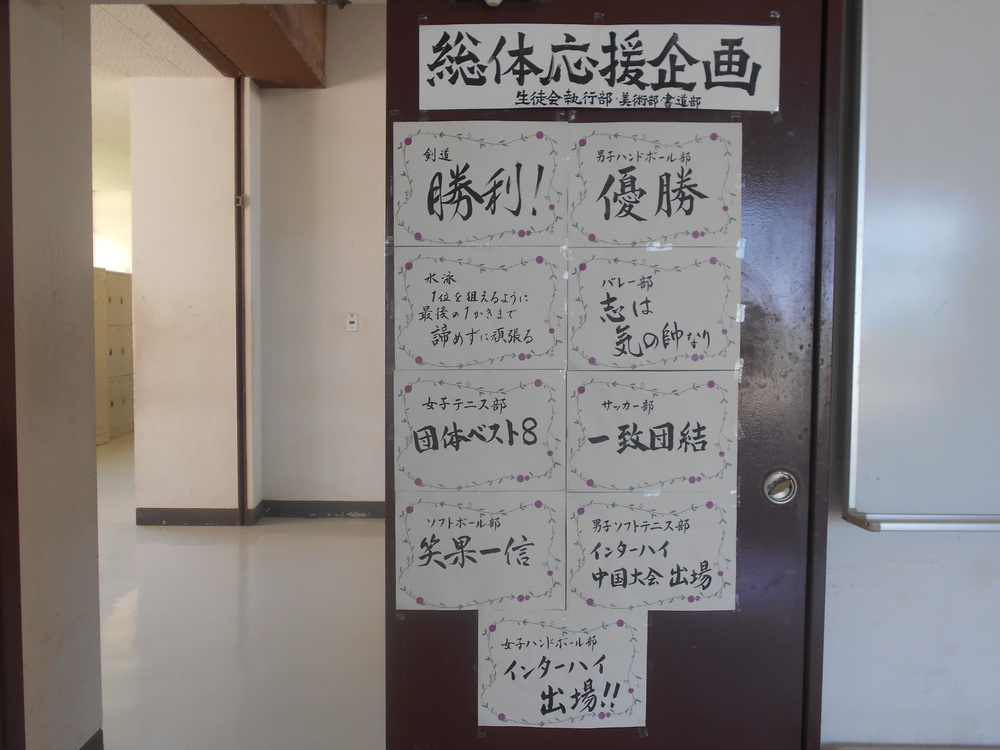 総体応援企画
生徒会執行部・美術部・書道部
剣道
勝利！
男子ハンドボール部
優勝
水泳
1位を狙えるように
最後の1かきまで
諦めずに頑張る
バレー部
志は
気の帥なり
女子テニス部
団体ベスト8
サッカー部
一致団結
ソフトボール部
笑果一信
男子ソフトテニス部
インターハイ
中国大会 出場
女子ハンドボール部
インターハイ
出場!!